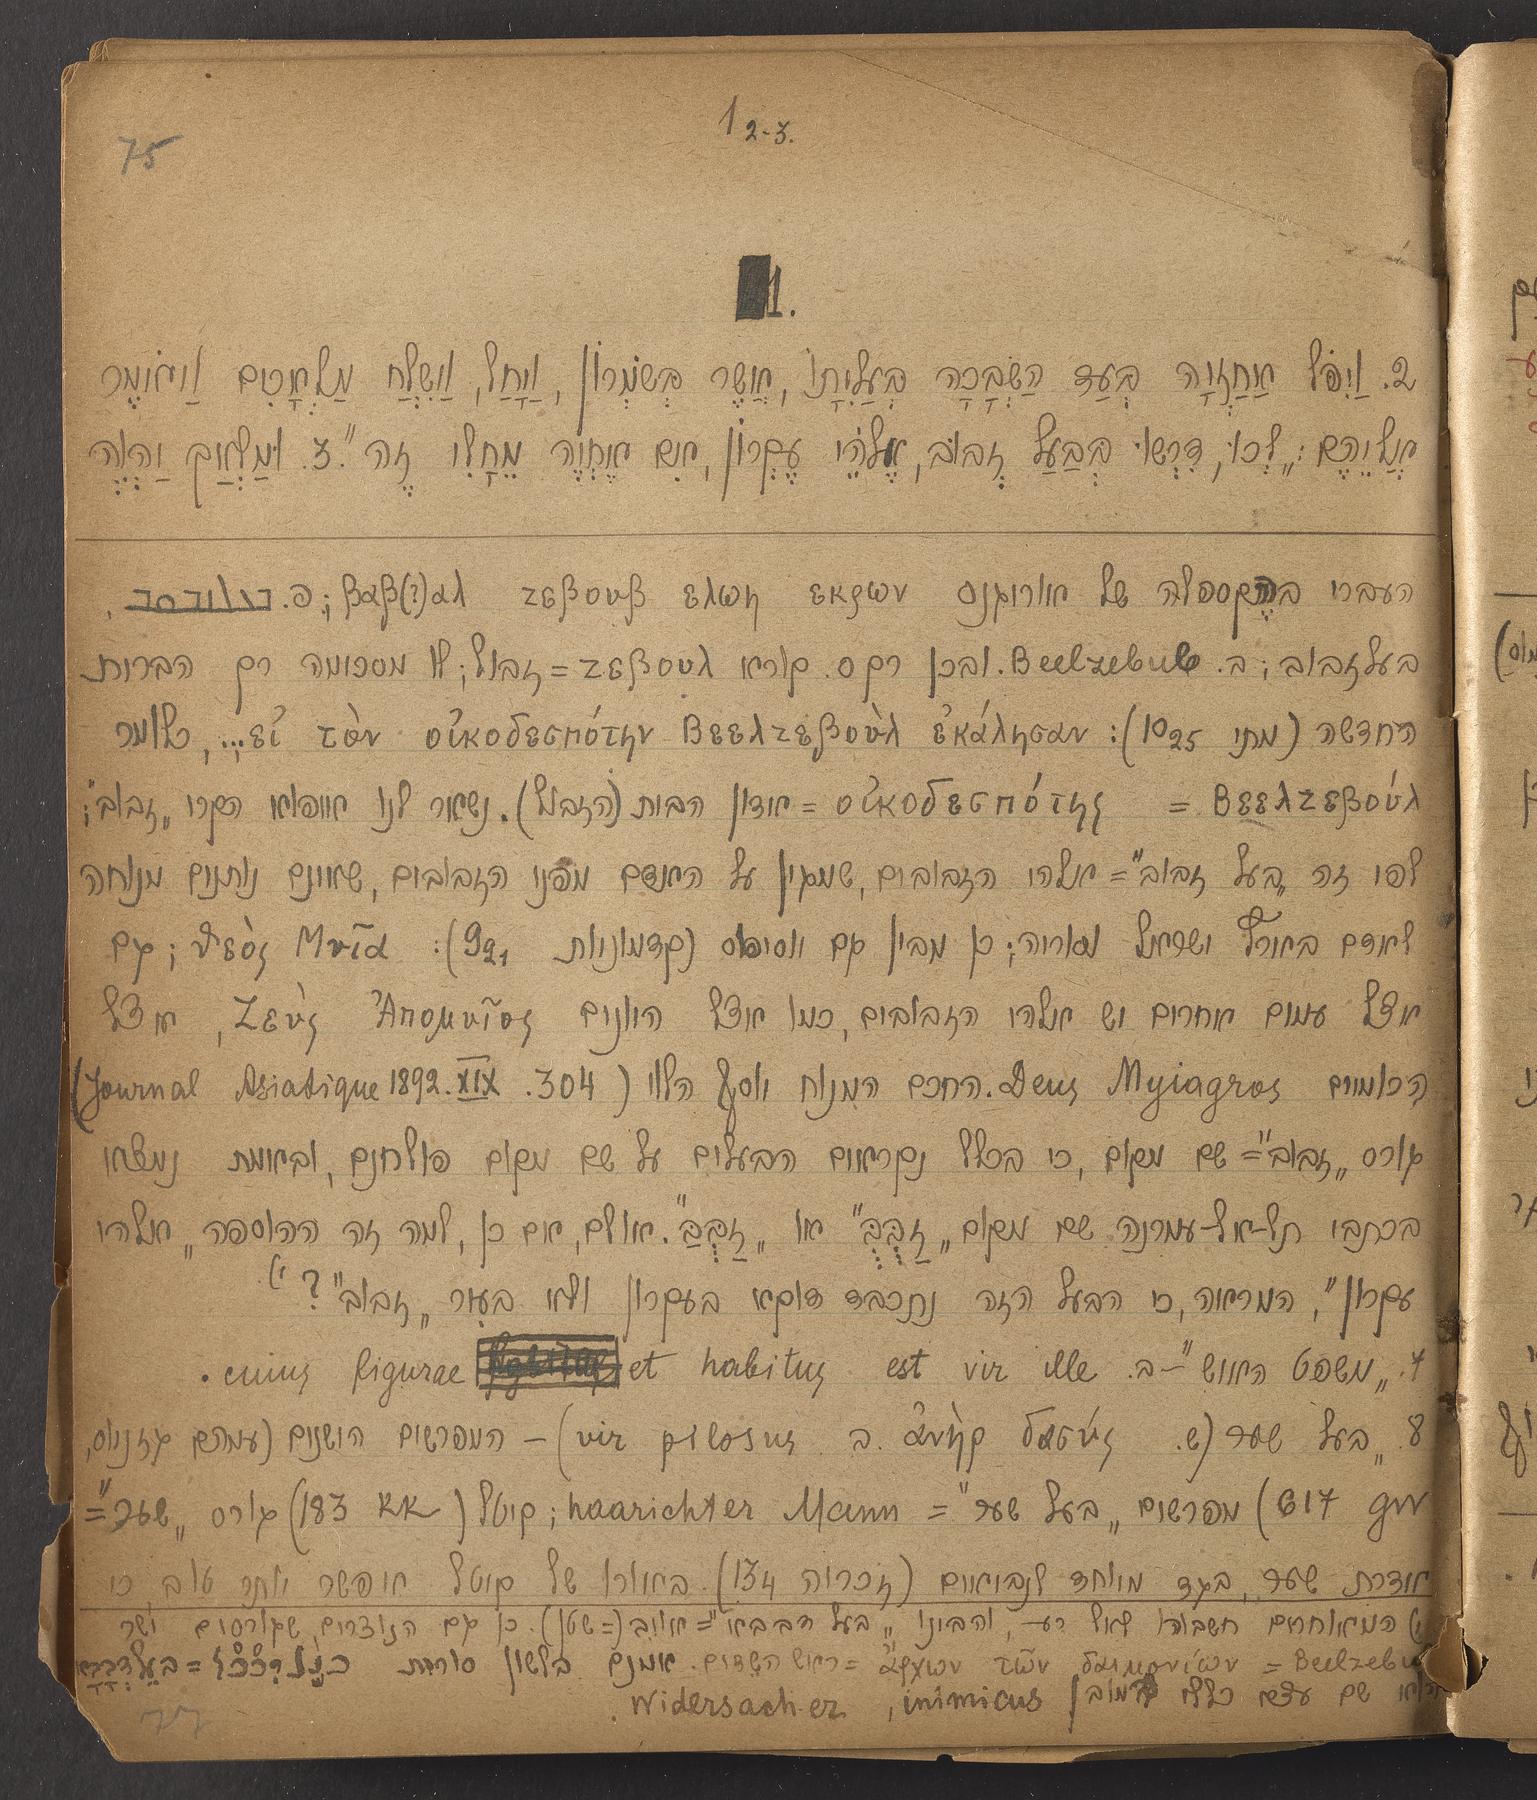 75
1 2-3.
1.
2. וַיִּפֹּל אֲחַזְיָה בְּעַד הַשְּׂבָכָה בַּעֲלִיָּתוֹ, אֲשֶׁר בְּשֹׁמְרוֹן, וַיָּחַל, וַיִּשְׁלַח מַלְאָכִים וַיֹּאמֶר
אֲלֵיהֶם: „לְכוּ, דִרְשׁוּ בְּבַעַל זְבוּב, אֱלֹהֵי עֶקְרוֹן, אִם אֶחְיֶה מֵחֳלִי זֶה". 3. וּמַלְאַךְ יַהְוֶה
העברי בהקספלה של אוריגנס βαβ(?)αλ ζεβουβ ελωη εκρων; פ.
בעלזבוב; ב. Beelzebub. ובכן רק ס. קורא ζεβουλ = זבול; לו מסכימה רק הברית
החדשה (מתי 10 25): εἰ τὸν οἰκοδεσπότην Βεελζεβοὺλ ἐκάλησαν..., כלומר
Βεελζεβούλ = οἰκοδεσπότης = אדון הבית (הזבול). נשאר לנו איפוא הקרי „זבוב";
לפי זה „בעל זבוב" = אלהי הזבובים, שמגין על האדם מפני הזבובים, שאינם נותנים מנוחה
לאדם באורל ישראל; כן מבין גם יוסיפוס (קדמוניות 9 2 1): θεὸς Μυῖα; גם
אצל עמים אחרים יש אלהי הזבובים, כמו אצל היונים Ζεὺς Ἀπομυῖος, אצל
הרומיים Deus Myiagros. החכם המנוח יוסף הלוי (Journal Asiatique 1892. XIX. 304)
גורס „זבוב" = שם מקום, כי בכלל נקראים הבעלים על שם מקום פולחנם, ובאמת נמצא
בכתבי תל-אל-עמרנה שם מקום „זַבֻבֻ" או „זַבֻבַּ". אולם, אם כן, למה זה ההוספה „אלהי
עקרון", המראה, כי הבעל הזה נתכבד דוקא בעקרון ולא בעיר „זבוב"? 1)
7. „משפט האיש" – ב. cuius figurae et habitus est vir ille.
8. „בעל שער" (ש. ἀνὴρ δασύς ב. vir pilosus) – המפרשים הישנים (עמהם גזניוס,
617 GW) מפרשים „בעל שער" = haarichter Mann; קיטל (183 KK) גורס „שער" =
אדרת שער, בגד מיוחד לנביאים (זכריה 13 4). באורו של קיטל אפשר יותר טוב, כי
1) המאוחרים חשבוהו לאל רע, והבינו „בעל דבבא" = אויב (= שטן). כן גם הנוצרים, שגורסים ישר
Beelzebub = ἄρχων τῶν δαιμονίων = ראש השדים. אמנם בלשון סורית = בְּעֵלְדְּבָבָא
הוא שם עצם כללי במובן inimicus, Widersacher.
77